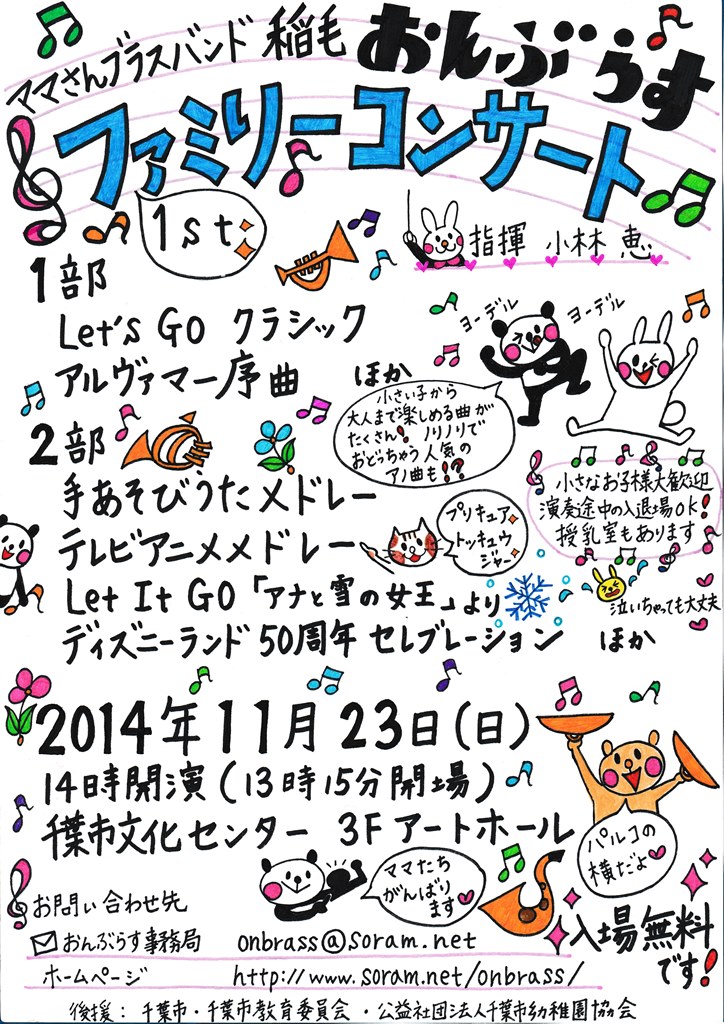 ママさんブラスバンド 稲毛 おんぶらす
ファミリーコンサート
1st
指揮 小林 恵
1部
Let's GO クラシック
アルヴァマー序曲 ほか
ヨーデル ヨーデル
小さい子から
大人まで楽しめる曲が
たくさん! ノリノリで
おどっちゃう人気の
アノ曲も!?
2部
手あそびうたメドレー
テレビアニメメドレー
プリキュア
トッキュウ
ジャー
小さなお子様大歓迎
演奏途中の入退場OK!
授乳室もあります
Let It GO 「アナと雪の女王」より
泣いちゃっても大丈夫
ディズニーランド 50周年 セレブレーション ほか
2014年11月23日(日)
14時開演(13時15分開場)
千葉市文化センター 3F アートホール
パルコの
横だよ
ママたち
がんばり
ます
お問い合わせ先
おんぶらす事務局 onbrass@soram.net
ホームページ http://www.soram.net/onbrass/
入場無料
です!
後援: 千葉市・千葉市教育委員会・公益社団法人千葉市幼稚園協会